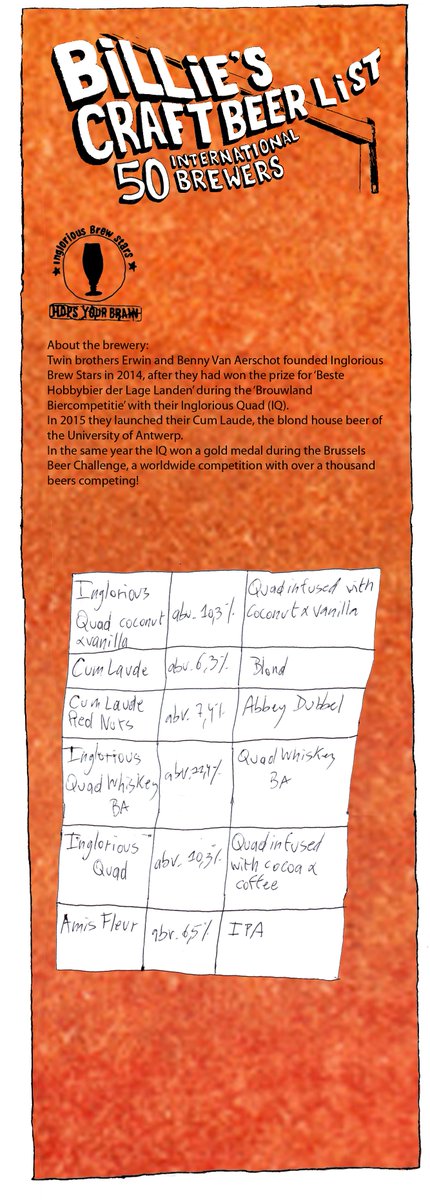 BiLLiE'S
CRAFT BEER LiST
50 INTERNATIONAL
BREWERS
Inglorious Brew Stars
HOPS YOUR BRAIN
About the brewery:
Twin brothers Erwin and Benny Van Aerschot founded Inglorious
Brew Stars in 2014, after they had won the prize for 'Beste
Hobbybier der Lage Landen' during the 'Brouwland
Biercompetitie' with their Inglorious Quad (IQ).
In 2015 they launched their Cum Laude, the blond house beer of
the University of Antwerp.
In the same year the IQ won a gold medal during the Brussels
Beer Challenge, a worldwide competition with over a thousand
beers competing!
Inglorious
Quad coconut
& vanilla
abv. 10,3%
Quad infused with
coconut & vanilla
Cum Laude
abv. 6,3%
Blond
Cum Laude
Red Nuts
abv. 7,4%
Abbey Dubbel
Inglorious
Quad Whiskey
BA
abv.
Quad Whiskey
BA
Inglorious
Quad
abv. 10,3%
Quad infused
with cocoa &
coffee
Amis Fleur
abv. 6,5%
IPA